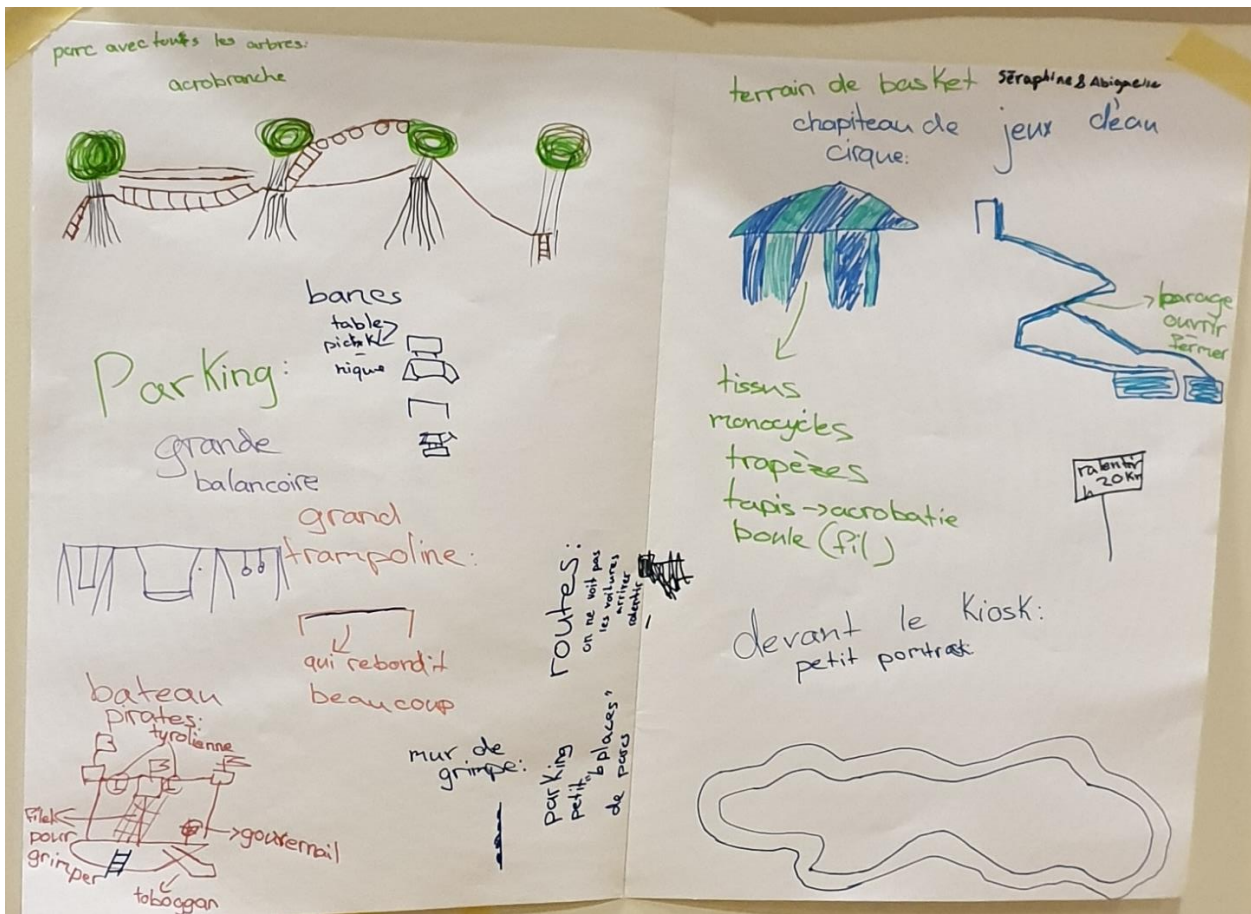 parc avec touts les arbres:
acrobranche
bancs
table
pick
nique
Parking:
grande
balancoire
grand
trampoline:
qui rebondit
beaucoup
bateau
pirates:
tyrolienne
filet
pour
grimper
gouvernail
toboggan
mur de
grimpe:
routes:
on ne voit pas
les voitures
arriver
ralentir
parking
petit "6places"
de parcs
terrain de basket
Séraphine & Abigaelle
chapiteau de
cirque:
jeux d'eau
barage
ouvrir
fermer
tissus
monocycles
trapèzes
tapis → acrobatie
boule (fil)
ralentir
20 Km
devant le Kiosk:
petit